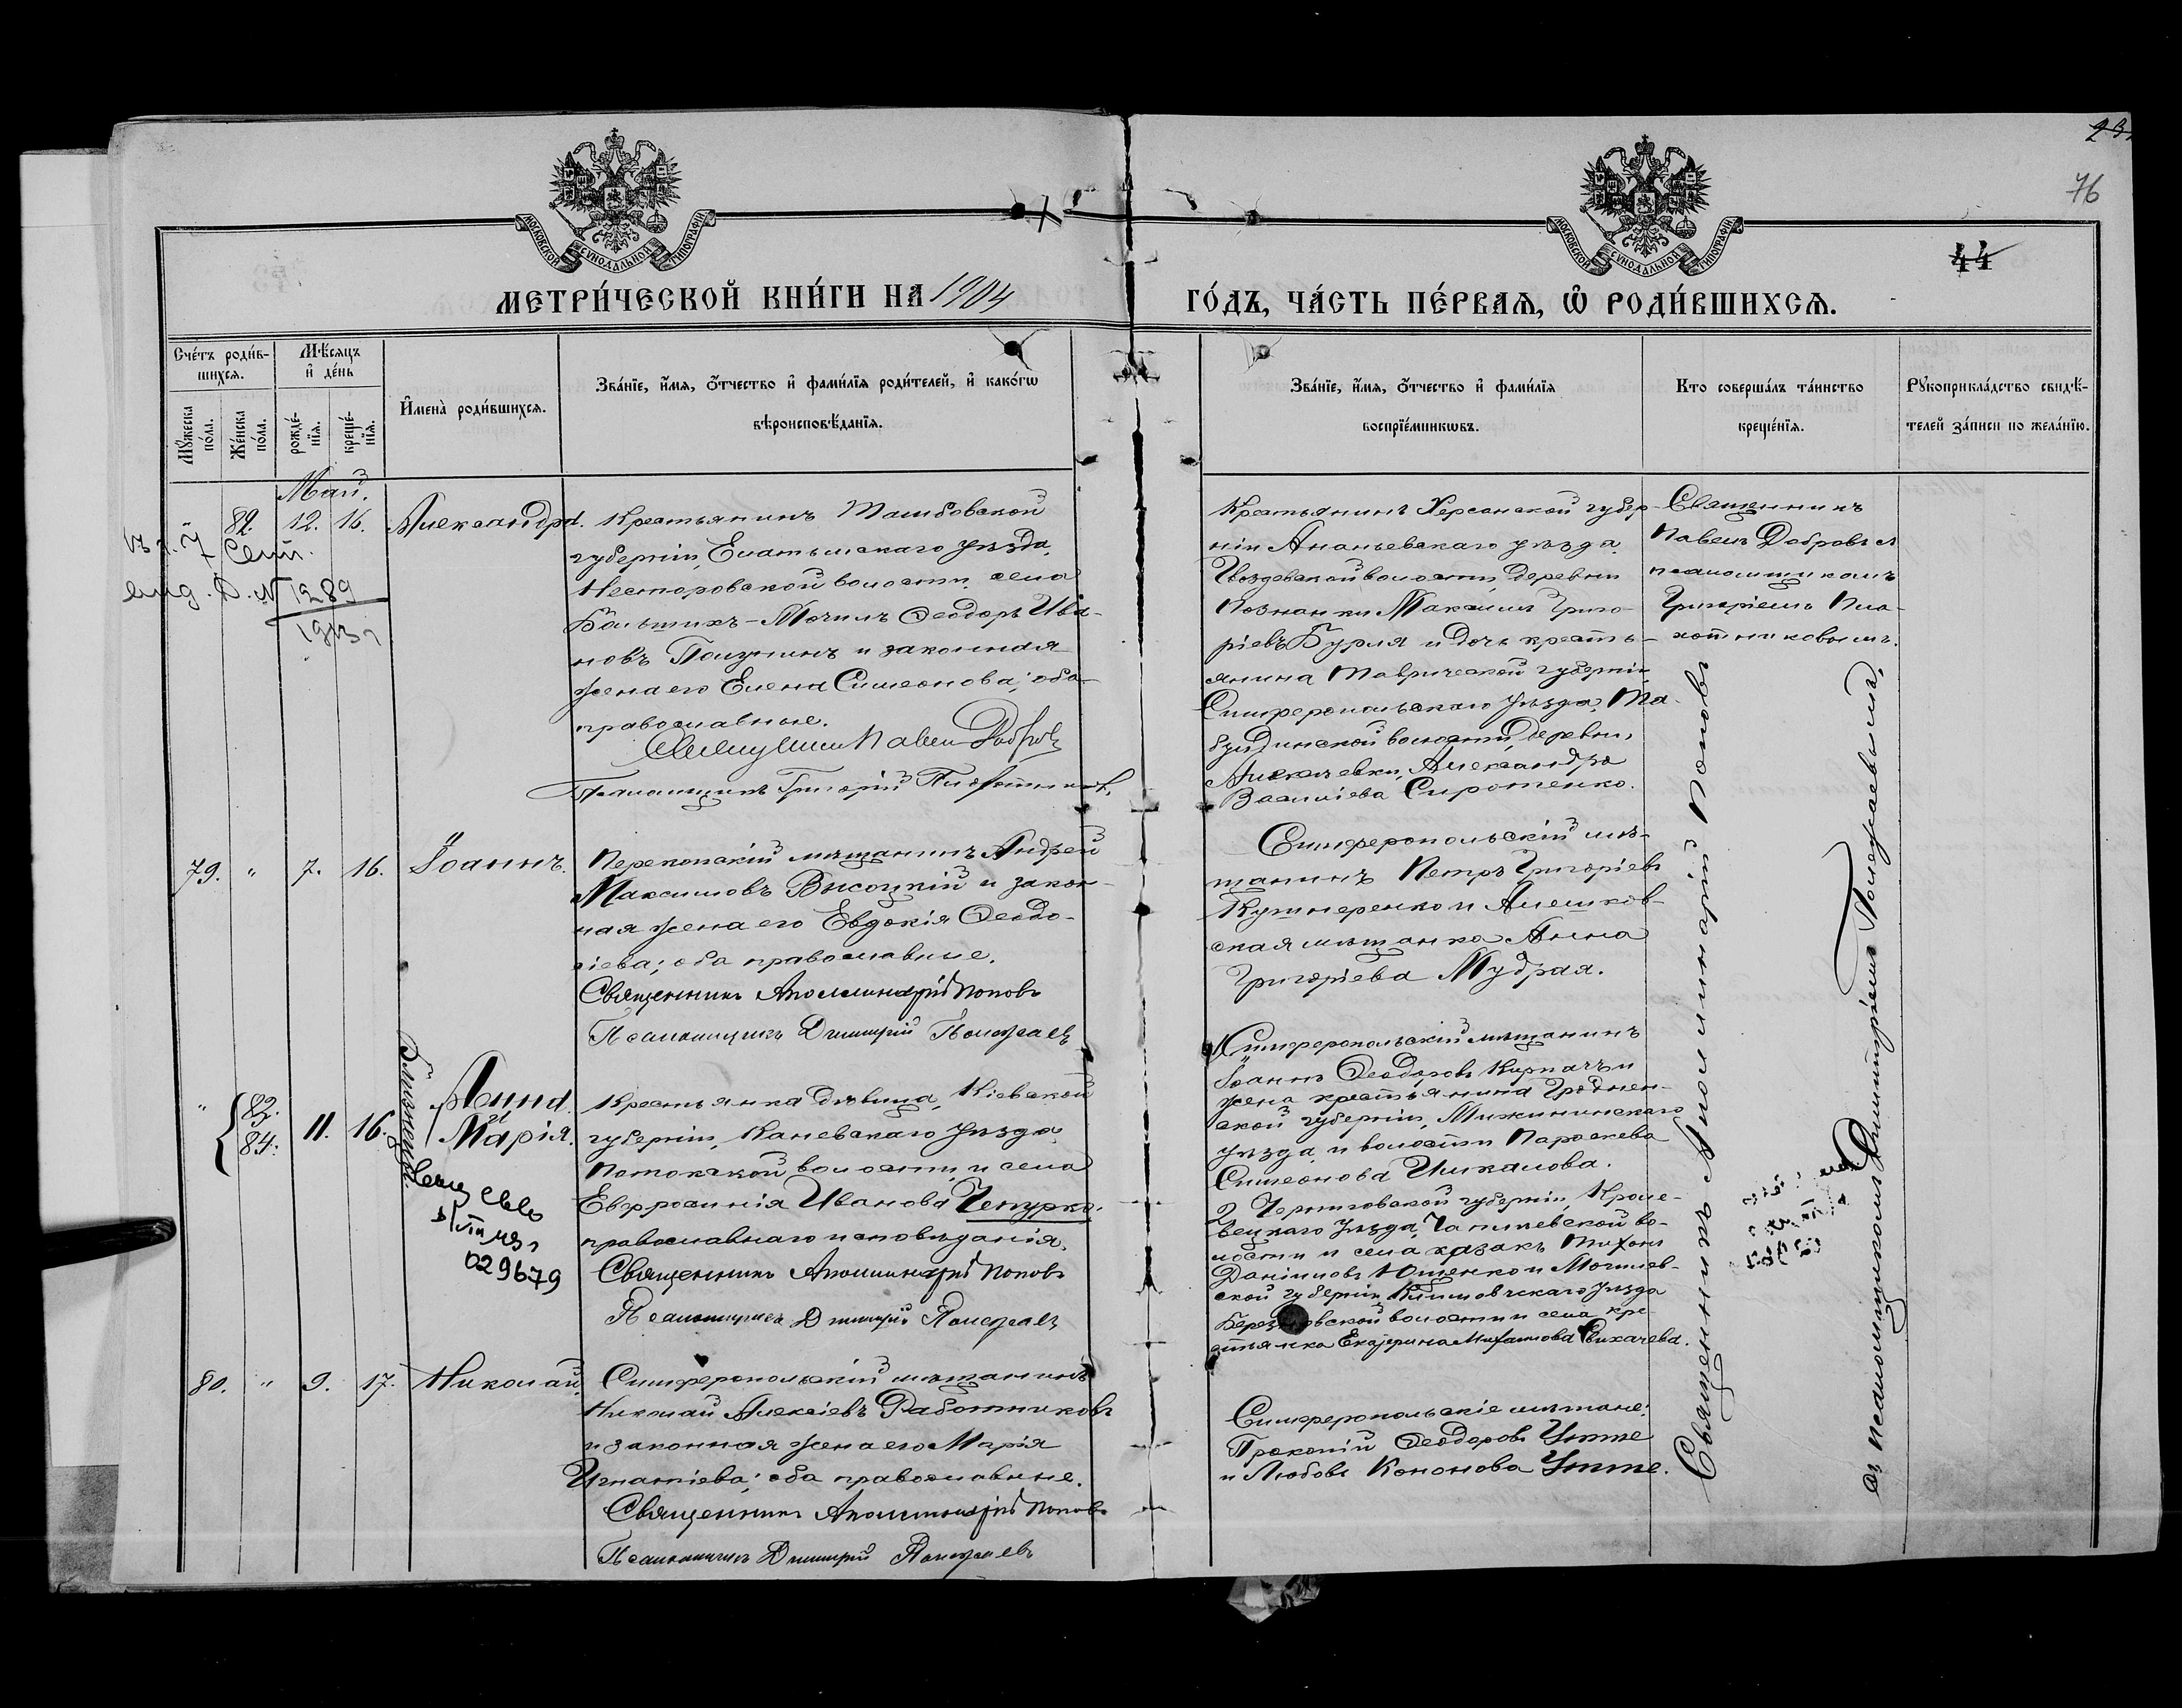 23
76
44
МОСКОВСКОЙ СУНОДАЛЬНОЙ ТИПОГРАФІИ
МОСКОВСКОЙ СУНОДАЛЬНОЙ ТИПОГРАФІИ
МЕТРИ́ЧЕСКОЙ КНИ́ГИ НА 1904
ГО́ДЪ, ЧА́СТЬ ПЕ́РВАѦ, Ѡ҆ РОДИ́ВШИХСѦ.
Сче́тъ роди́в-
шихсѧ.
Мꙋ́жеска по́ла.
Же́нска по́ла.
Мѣ́сѧцъ
и҆ де́нь
рожде́-
нїѧ.
креще́-
нїѧ.
И҆мена̀ роди́вшихсѧ.
Зва́нїе, и҆́мѧ, ѻ҆́тчество и҆ фами́лїѧ роди́телей, и҆ како́гѡ
вѣроисповѣ́данїѧ.
Зва́нїе, и҆́мѧ, ѻ҆́тчество и҆ фами́лїѧ
воспрїе́мникѡвъ.
Кто соверша́лъ та́инство
креще́нїѧ.
Рꙋкоприкла́дство свидѣ́-
телей за́писи по жела́нїю.
Май.
" 82. 12. 16. Александра.
7 Сент.
выд. Д. № 1289
1913 г
Крестьянинъ Тамбовской
губерніи, Елатьмскаго уѣзда,
Несторовской волости, села
Большихъ-Мочилъ Ѳеодоръ Ива-
новъ Полунинъ и законная
жена его Елена Симеонова; оба
православные.
Священникъ Павелъ Добровъ
Псаломщикъ Григорій Плотниковъ.
Крестьянинъ Херсонской губер-
ніи Ананьевскаго уѣзда,
Гвоздевской волости, деревни
Познанки Максимъ Григо-
ріевъ Бурля и дочь кресть-
янина Таврической губерніи
Симферопольскаго уѣзда, Та-
булдинской волости, деревни,
Алексѣевки, Александра
Василіева Сиротенко.
Священникъ
Павелъ Добровъ съ
псаломщикомъ
Григоріемъ Пло-
тниковымъ.
79. " 7. 16. Іоаннъ.
Перекопскій мѣщанинъ Андрей
Максимовъ Высоцкій и закон-
ная жена его Евдокія Ѳеодо-
сіева; оба православные.
Священникъ Аполлинарій Поповъ
Псаломщикъ Димитрій Полежаевъ
Симферопольскій мѣ-
щанинъ Петръ Григоріевъ
Кушнеренко и Алешков-
ская мѣщанка Анна
Григоріева Мудрая.
" 83. 84. 11. 16. Близнецы.
Анна.
и
Марія.
029679
Крестьянка дѣвица, Кіевской
губерніи, Каневскаго уѣзда,
Потокской волости и села
Евфросинія Иванова Чепурко,
православнаго исповѣданія.
Священникъ Аполлинарій Поповъ
Псаломщикъ Димитрій Полежаевъ
1, Симферопольскій мѣщанинъ
Іоаннъ Ѳеодоровъ Карпачъ и
жена крестьянина Гроднен-
ской губерніи,
уѣзда и волости Параскева
Симеонова Шикалова.
2 Черниговской губерніи, Кроле-
вецкаго уѣзда, волости и села казакъ Тихонъ
Даніиловъ Ющенко и Могилев-
ской губерніи, Климовичскаго уѣзда
волости и села кре-
стьянка Екатерина Михаилова Лихачева.
80. " 9. 17. Николай.
Симферопольскій мѣщанинъ
Николай Алексіевъ Работниковъ
и законная жена его Марія
Игнатіева; оба православные.
Священникъ Аполлинарій Поповъ
Псаломщикъ Димитрій Полежаевъ
Симферопольскіе мѣщане:
Прокопій Ѳеодоровъ Утте
и Любовь Кононова Утте.
Священникъ Аполлинарій Поповъ
съ псаломщикомъ Димитріемъ Полежаевымъ.